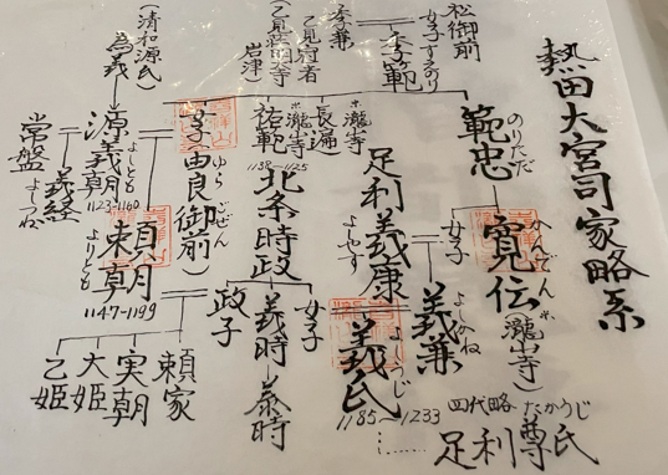 熱田大宮司家略系
松御前
女子すえのり
季範
季兼
乙見冠者
乙見法明大寺
岩津)
(清和源氏)
為義
範忠
のりただ
*瀧山寺
長暹
*瀧山寺
祐範
女子(由良御前)
ゆら ごぜん
源義朝
よしとも
1123-1160
常盤
義経
よしつね
寛伝(瀧山寺)
かんでん
女子
足利義康
よしやす
義兼
よしかね
義氏
よしうじ
1185~1233
四代略 たかうじ
足利尊氏
1138~
北条時政
女子
義時-泰時
政子
頼朝
よりとも
1147-1199
頼家
実朝
大姫
乙姫